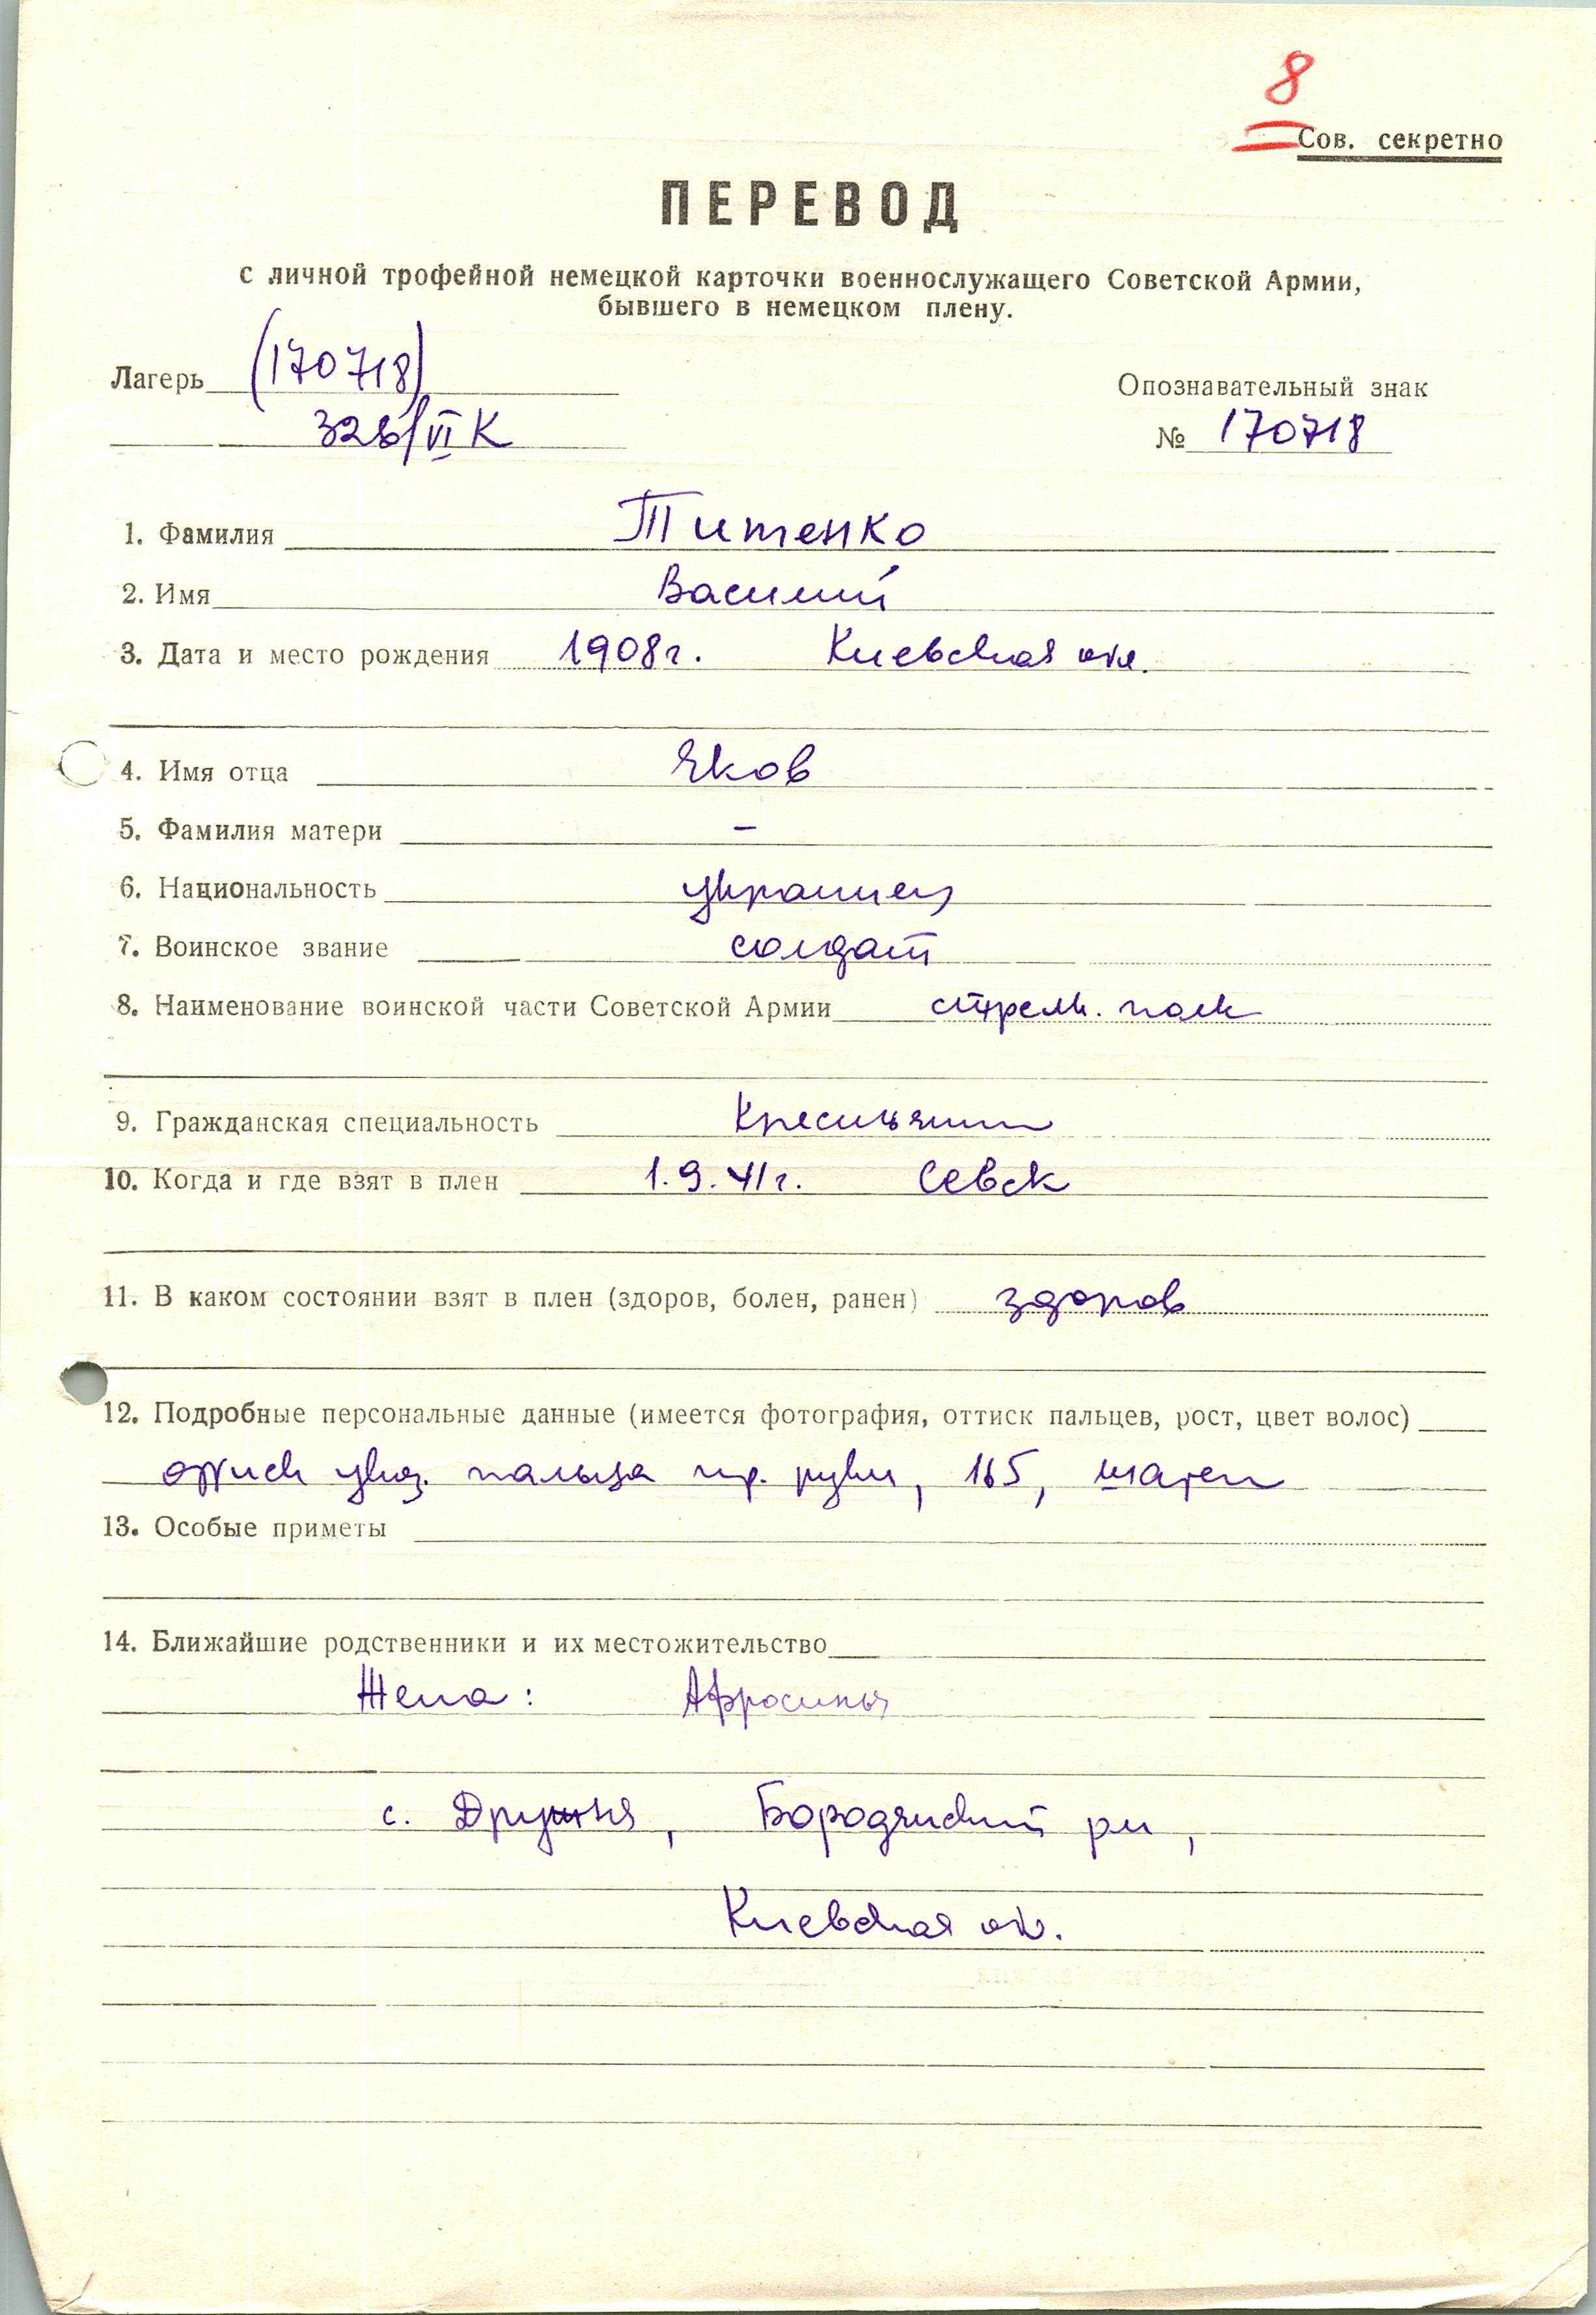 8
Сов. секретно
ПЕРЕВОД
с личной трофейной немецкой карточки военнослужащего Советской Армии,
бывшего в немецком плену.
Лагерь (170718)
326/VI К
Опознавательный знак
№ 170718
1. Фамилия Титенко
2. Имя Василий
3. Дата и место рождения 1908г. Киевская обл.
4. Имя отца Яков
5. Фамилия матери –
6. Национальность украинец
7. Воинское звание солдат
8. Наименование воинской части Советской Армии стрелк. полк
9. Гражданская специальность Крестьянин
10. Когда и где взят в плен 1.9.41г. Севск
11. В каком состоянии взят в плен (здоров, болен, ранен) здоров
12. Подробные персональные данные (имеется фотография, оттиск пальцев, рост, цвет волос)
оттиск указ. пальца пр. руки, 165, шатен
13. Особые приметы
14. Ближайшие родственники и их местожительство
Жена: Афросинья
с. Дружня, Бородянский рн,
Киевская обл.